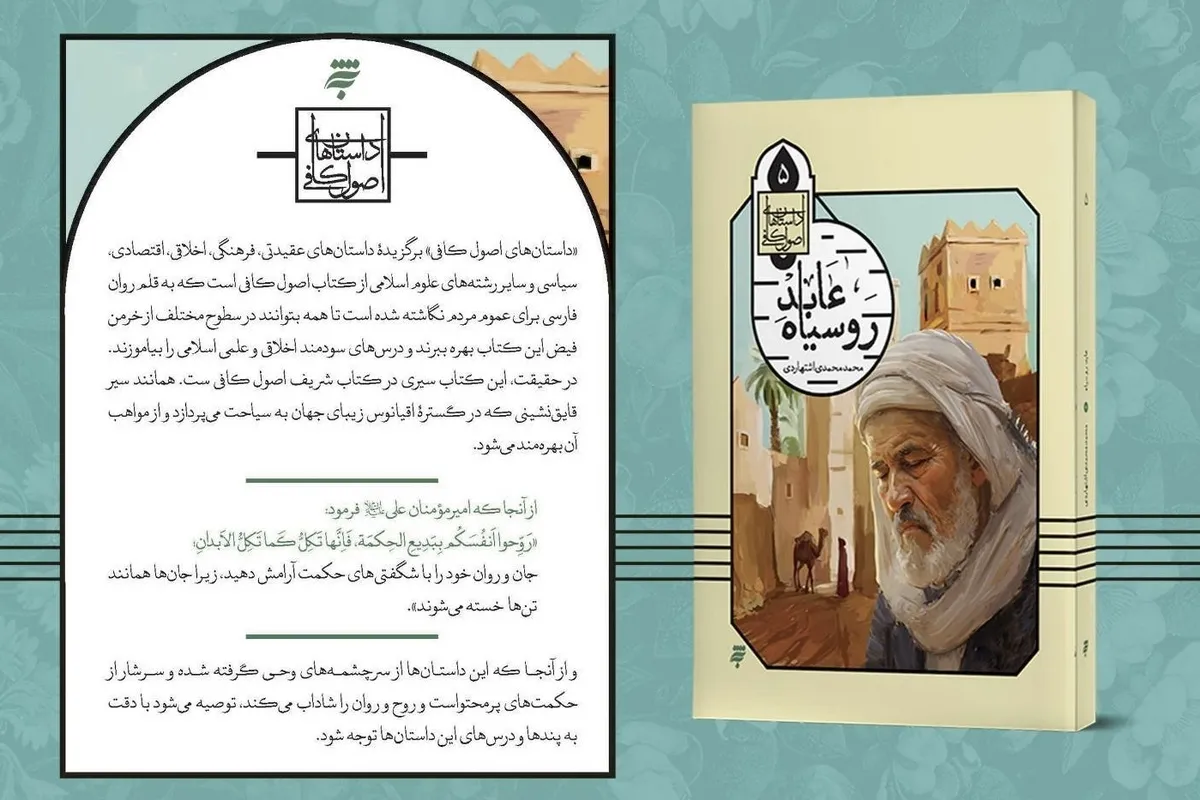 داستان‌های
اصول کافی
«داستان‌های اصول کافی» برگزیدهٔ داستان‌های عقیدتی، فرهنگی، اخلاقی، اقتصادی،
سیاسی و سایر رشته‌های علوم اسلامی از کتاب اصول کافی است که به قلم روان
فارسی برای عموم مردم نگاشته شده است تا همه بتوانند در سطوح مختلف از خرمن
فیض این کتاب بهره ببرند و درس‌های سودمند اخلاقی و علمی اسلامی را بیاموزند.
در حقیقت، این کتاب سیری در کتاب شریف اصول کافی ست. همانند سیر
قایق‌نشینی که در گسترهٔ اقیانوس زیبای جهان به سیاحت می‌پردازد و از مواهب
آن بهره‌مند می‌شود.
از آنجا که امیرمؤمنان علی علیه‌السلام فرمود:
«رَوِّحوا اَنفُسَکُم بِبَدیعِ الحِکمَة، فَاِنَّها تَکِلُّ کَما تَکِلُّ الاَبدانِ؛
جان و روان خود را با شگفتی‌های حکمت آرامش دهید، زیرا جان‌ها همانند
تن‌ها خسته می‌شوند».
و از آنجا که این داستان‌ها از سرچشمه‌های وحی گرفته شده و سرشار از
حکمت‌های پرمحتواست و روح و روان را شاداب می‌کند، توصیه می‌شود با دقت
به پندها و درس‌های این داستان‌ها توجه شود.
۵
داستان‌های
اصول کافی
عابد
روسیاه
محمد محمدی اشتهاردی
۵
عابد روسیاه
محمد محمدی اشتهاردی